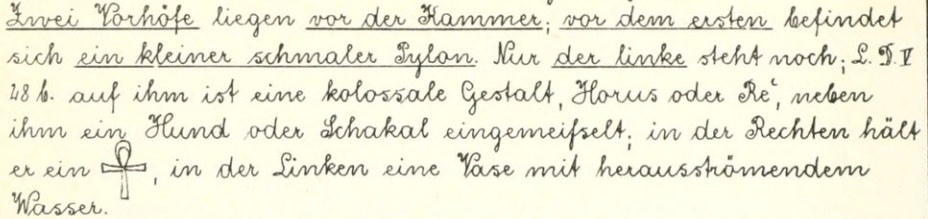 Zwei Vorhöfe liegen vor der Kammer; vor dem ersten befindet
sich ein kleiner schmaler Pylon. Nur der linke steht noch; L. D. V
48 b. auf ihm ist eine kolossale Gestalt, Horus oder Reʿ, neben
ihm ein Hund oder Schakal eingemeifselt; in der Rechten hält
er ein ☥, in der Linken eine Vase mit herausströmendem
Wasser.